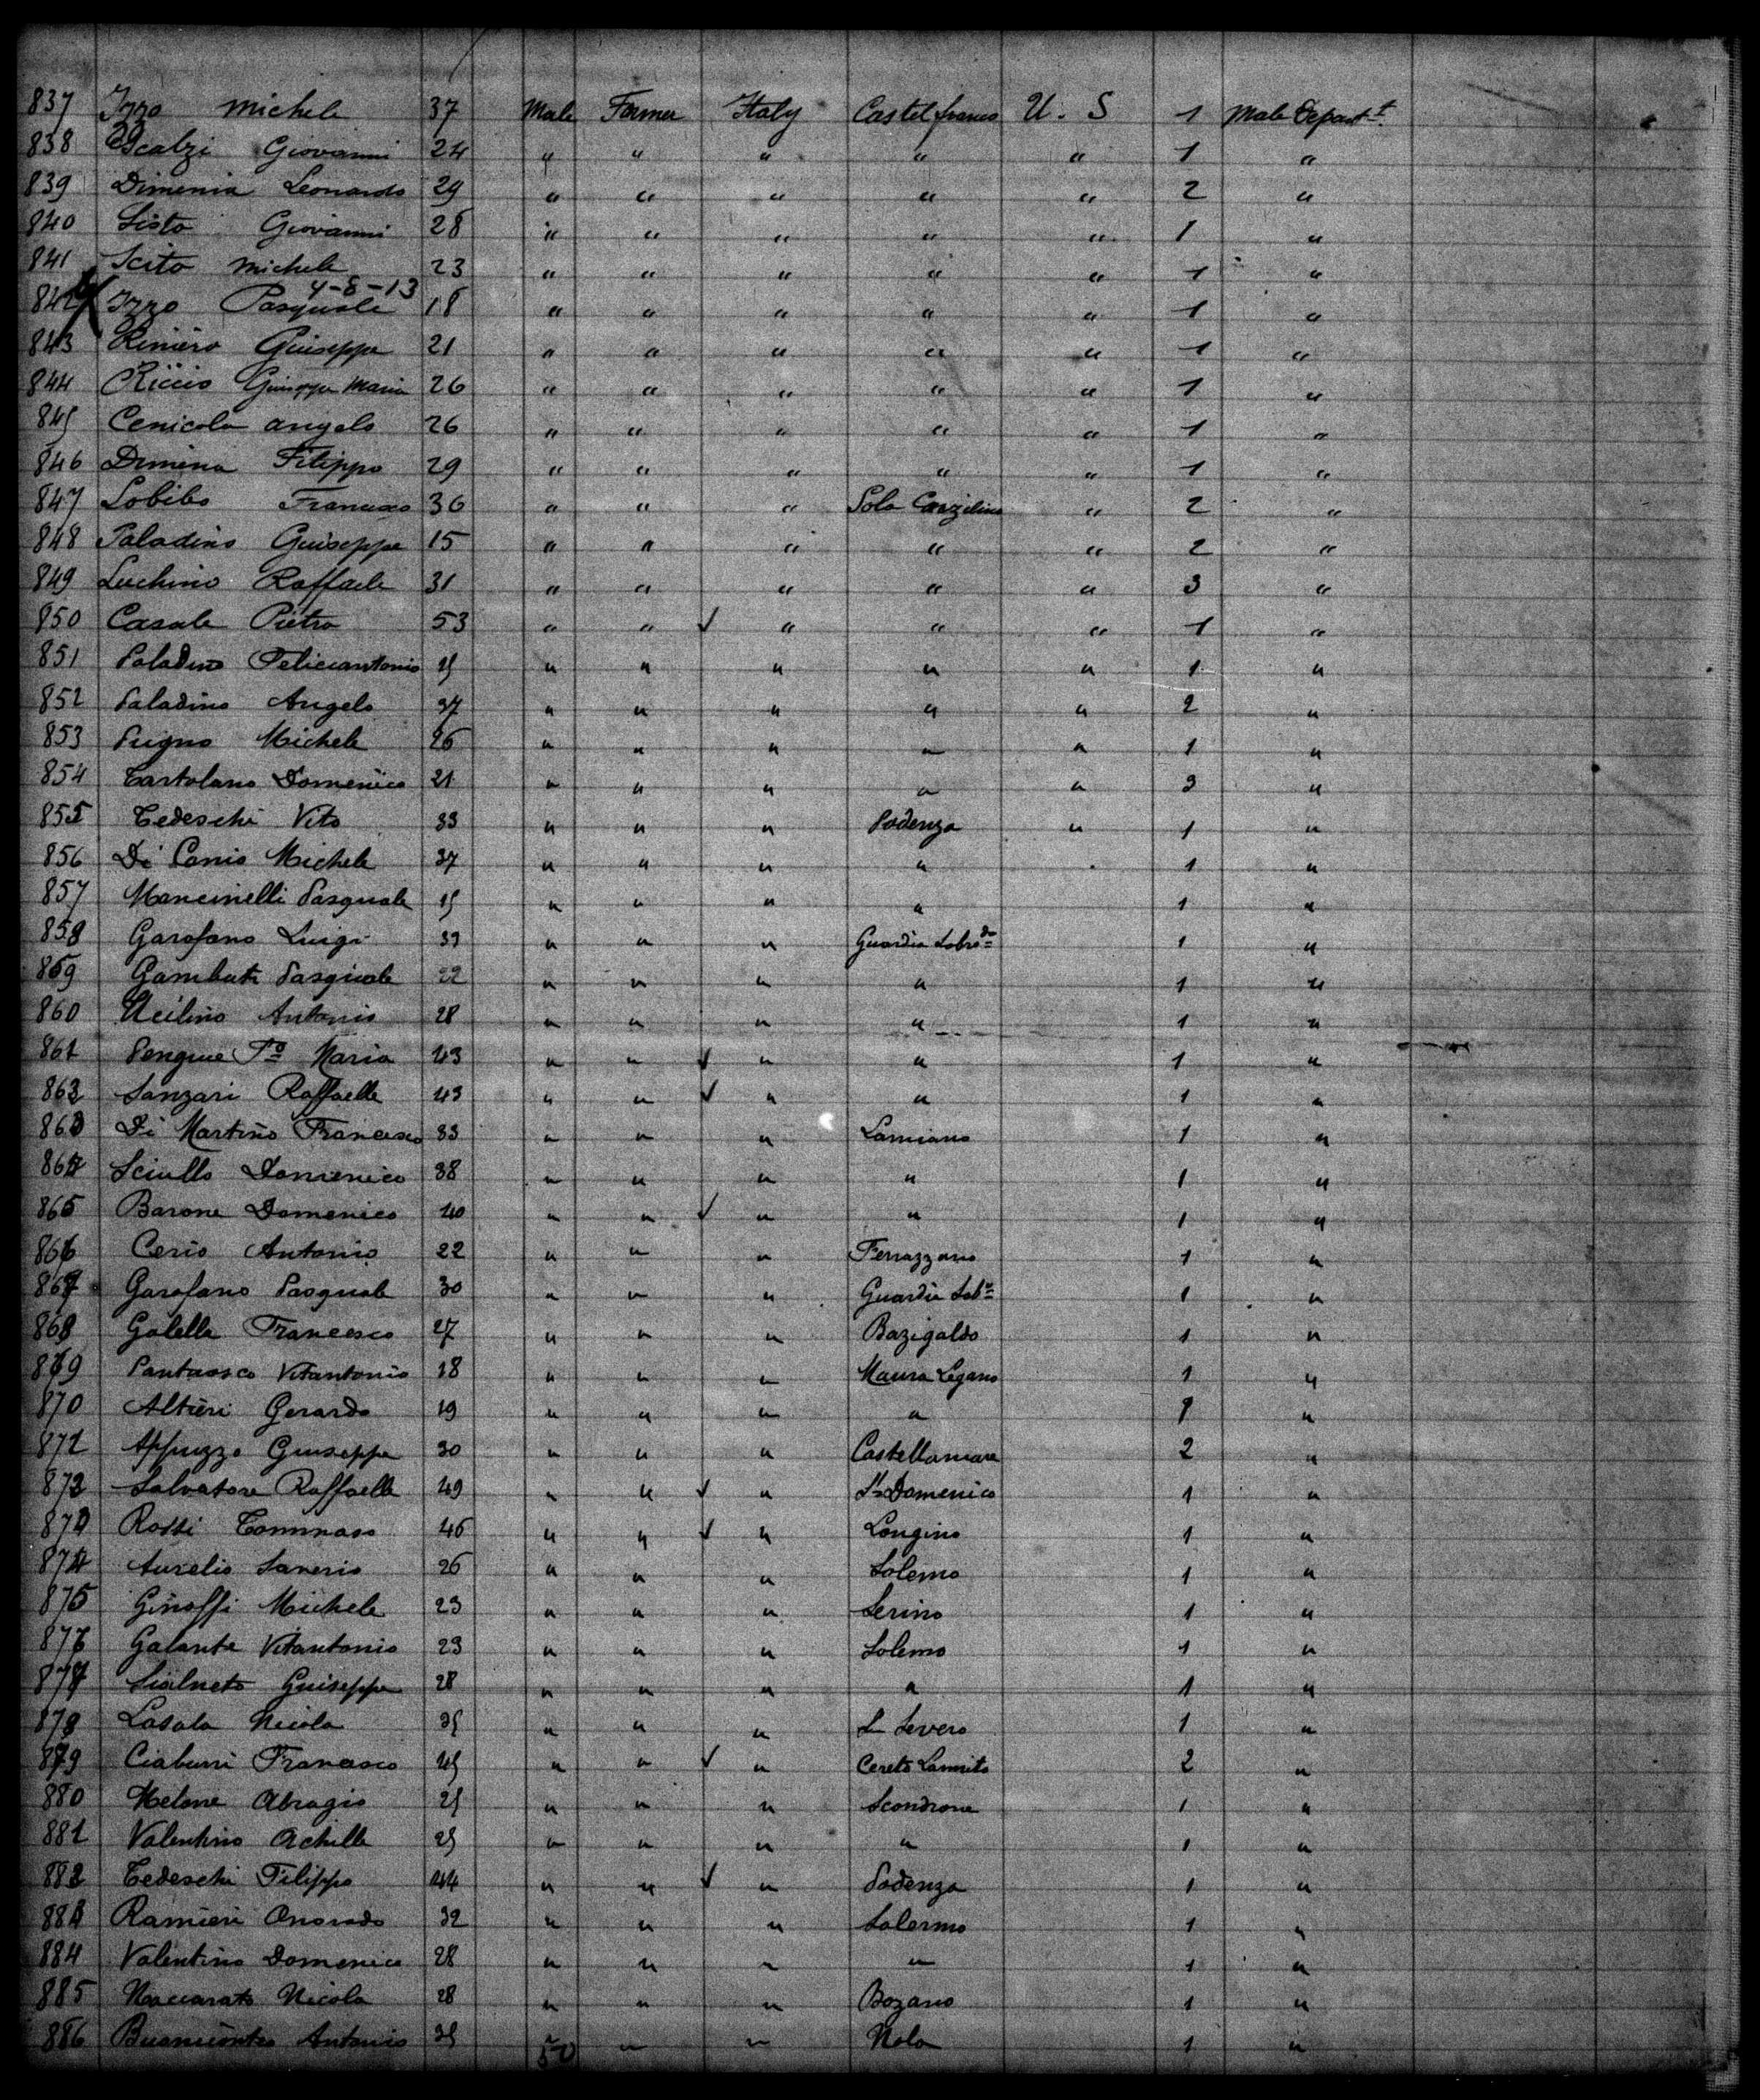 837 Izzo Michele 37 Male Farmer Italy Castelfranco U. S 1 Male Depart<sup>t</sup>.
838 Scalzi Giovanni 24 " " " " " 1 "
839 Dimenia Leonardo 29 " " " " " 2 "
840 Sisto Giovanni 28 " " " " " 1 "
841 Scito Michele 23 " " " " " 1 "
4-8-13
842 Izzo Pasquale 18 " " " " " 1 "
843 Riniero Guiseppe 21 " " " " " 1 "
844 Riccio Giuseppe Maria 26 " " " " " 1 "
845 Cenicola Angelo 26 " " " " " 1 "
846 Dimina Filippo 29 " " " " " 1 "
847 Lobibo Francesco 36 " " " Sola " 2 "
848 Paladino Guiseppe 15 " " " " " 2 "
849 Luchino Raffaele 31 " " " " " 3 "
850 Casale Pietro 53 " " ✓ " " " 1 "
851 Paladino Feliceantonio " " " " " 1 "
852 Paladino Angelo 37 " " " " " 2 "
853 Pugno Michele 26 " " " " " 1 "
854 Tartolano Domenico 21 " " " " " 3 "
855 Tedeschi Vito 33 " " " Padenza " 1 "
856 Di Canio Michele 37 " " " " 1 "
857 Mancinelli Pasquale " " " " 1 "
858 Garofano Luigi 39 " " " Guardia 1 "
859 Gambuti Pasquale 22 " " " " 1 "
860 Ucilino Antonio 28 " " " " 1 "
861 Pengue Maria 43 " " ✓ " " 1 "
862 Sanzari Raffaelle 43 " " ✓ " " 1 "
863 Di Martino Francesco 33 " " " Lamiano 1 "
864 Sciullo Domenico 38 " " " " 1 "
865 Barone Domenico 40 " " ✓ " " 1 "
866 Cerio Antonio 22 " " " Ferrazzano 1 "
867 Garofano Pasquale 30 " " " Guardia 1 "
868 Galella Francesco 27 " " " Bazigaldo 1 "
869 Pantaosco Vitantonio 18 " " " Maura Legano 1 "
870 Altieri Gerardo 19 " " " " 1 "
871 Appruzzo Giuseppe 30 " " " Castellamare 2 "
872 Salvatore Raffaelle 49 " " ✓ " S. Domenico 1 "
873 Rossi Tommaso 46 " " ✓ " Longino 1 "
874 Aurelio Saverio 26 " " " Solerno 1 "
875 Ginoffi Michele 23 " " " Serino 1 "
876 Galante Vitantonio 23 " " " Solerno 1 "
877 Guiseppe 28 " " " " 1 "
878 Lasala Nicola 35 " " " S. Severo 1 "
879 Ciaburri Francesco 45 " " ✓ " Cereto Lannito 2 "
880 Melone Abragio 25 " " " Scondrone 1 "
881 Valentino Achille 25 " " " " 1 "
882 Tedeschi Filippo 44 " " ✓ " Padenza 1 "
883 Ramieri Onorado 32 " " " Salermo 1 "
884 Valentino Domenico 28 " " " " 1 "
885 Naccarato Nicola 28 " " " Bozano 1 "
886 Buonicontro Antonio 35 " " " Nola 1 "
50